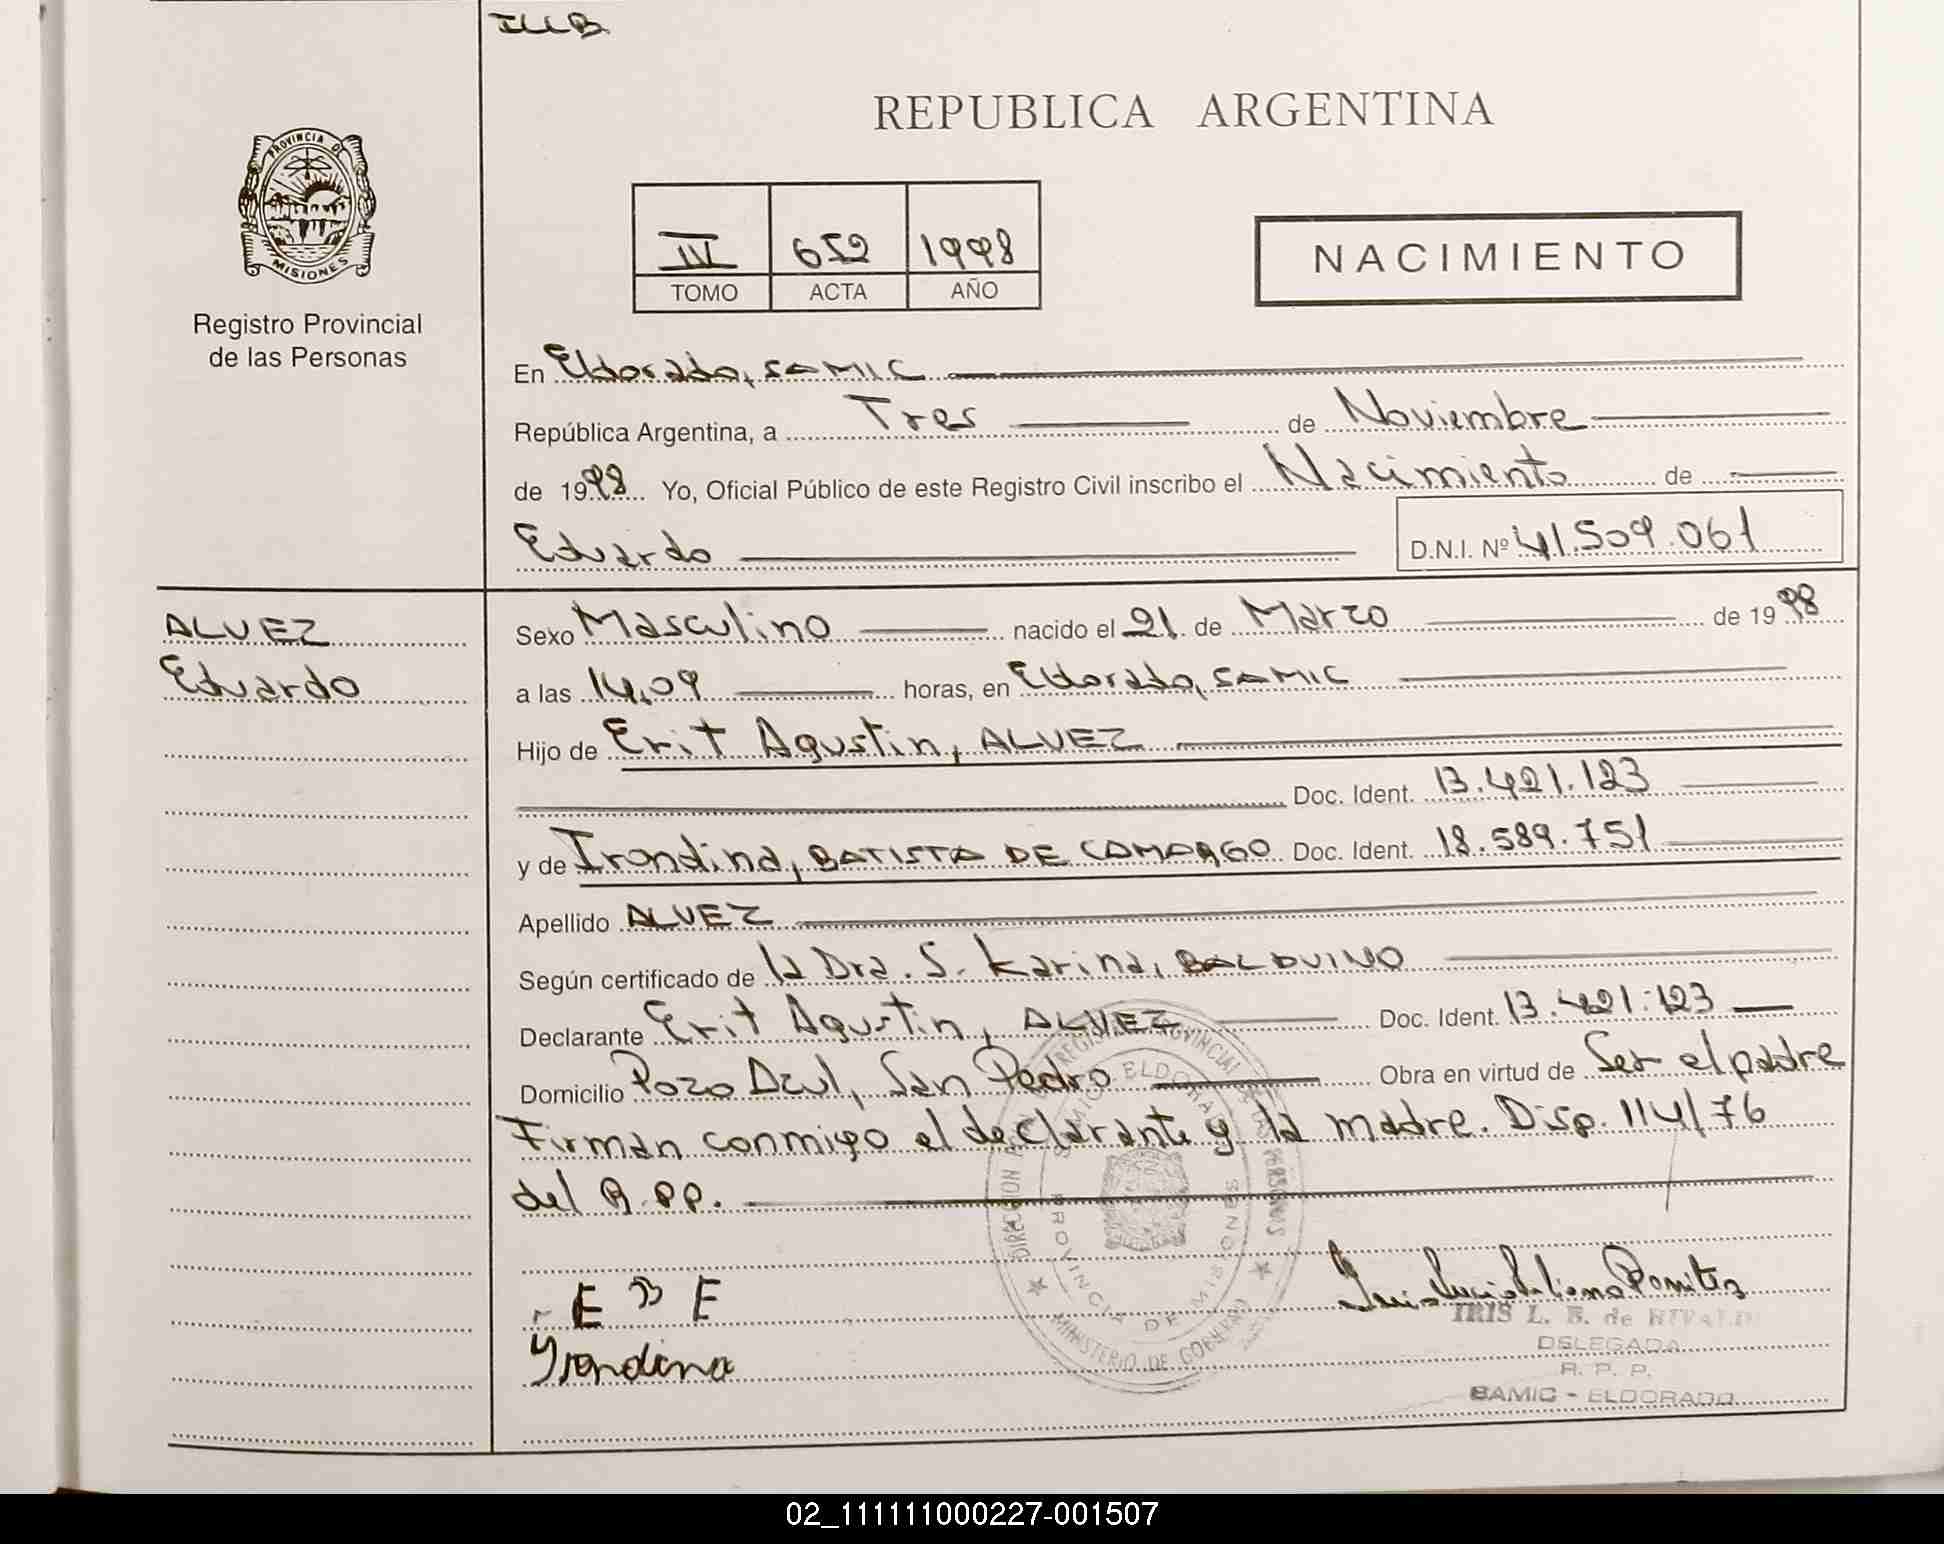 ILLB
REPUBLICA ARGENTINA
PROVINCIA DE
MISIONES
Registro Provincial
de las Personas
III 652 1998
TOMO ACTA AÑO
NACIMIENTO
En Eldorado, SAMIC
República Argentina, a Tres de Noviembre
de 1998 Yo, Oficial Público de este Registro Civil inscribo el Nacimiento de
Eduardo D.N.I. Nº 41.509.061
ALVEZ
Eduardo
Sexo Masculino nacido el 21 de Marzo de 1998
a las 14,09 horas, en Eldorado, SAMIC
Hijo de Erit Agustin, ALVEZ
Doc. Ident. 13.421.123
y de Irondina, BATISTA DE CAMARGO Doc. Ident. 18.589.751
Apellido ALVEZ
Según certificado de la Dra. S. Karina, BALDUINO
Declarante Erit Agustin, ALVEZ Doc. Ident. 13.421.123
Domicilio Pozo Azul, San Pedro Obra en virtud de Ser el padre
Firman conmigo el declarante y la madre. Disp. 114/76
del R.PP.
Irondina
IRIS L. B. de RIVALDI
DELEGADA
R. P. P.
SAMIC - ELDORADO
DIRECCION REGISTRO PROVINCIAL DE LAS PERSONAS
MINISTERIO DE GOBIERNO
SAMIC ELDORADO
PROVINCIA DE MISIONES
02_111111000227-001507